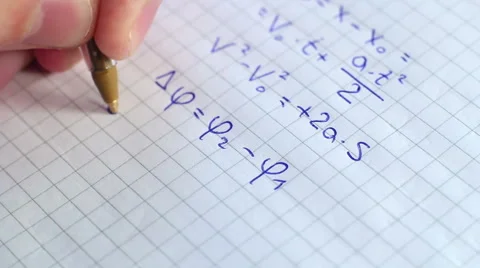 = x - x₀ =
= V₀ · t + a·t²/2
V² - V₀² = +2a·S
Δφ = φ₂ - φ₁